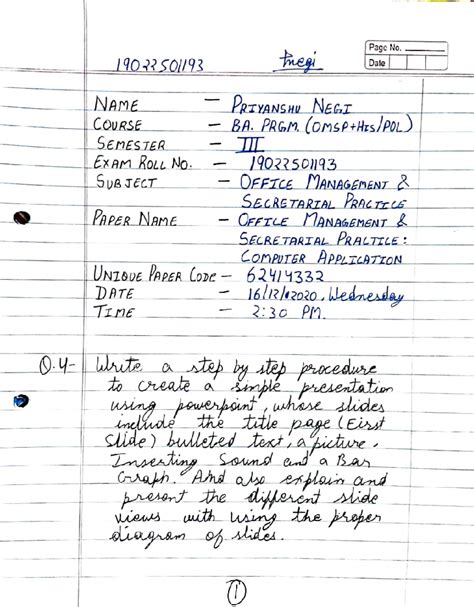 Page No.
Date
19022501193 Pnegi
NAME - PRIYANSHU NEGI
COURSE - BA. PRGM. (OMSP+HIS/POL)
SEMESTER - III
EXAM ROLL NO. - 19022501193
SUBJECT - OFFICE MANAGEMENT &
SECRETARIAL PRACTICE
PAPER NAME - OFFICE MANAGEMENT &
SECRETARIAL PRACTICE:
COMPUTER APPLICATION
UNIQUE PAPER CODE - 62414332
DATE - 16/12/2020, Wednesday
TIME - 2:30 PM.
Q.4- Write a step by step procedure
to create a simple presentation
using powerpoint, whose slides
include the title page (First
Slide) bulleted text, a picture,
Inserting Sound and a Bar
Graph. And also explain and
present the different slide
views with using the proper
diagram of slides.
1